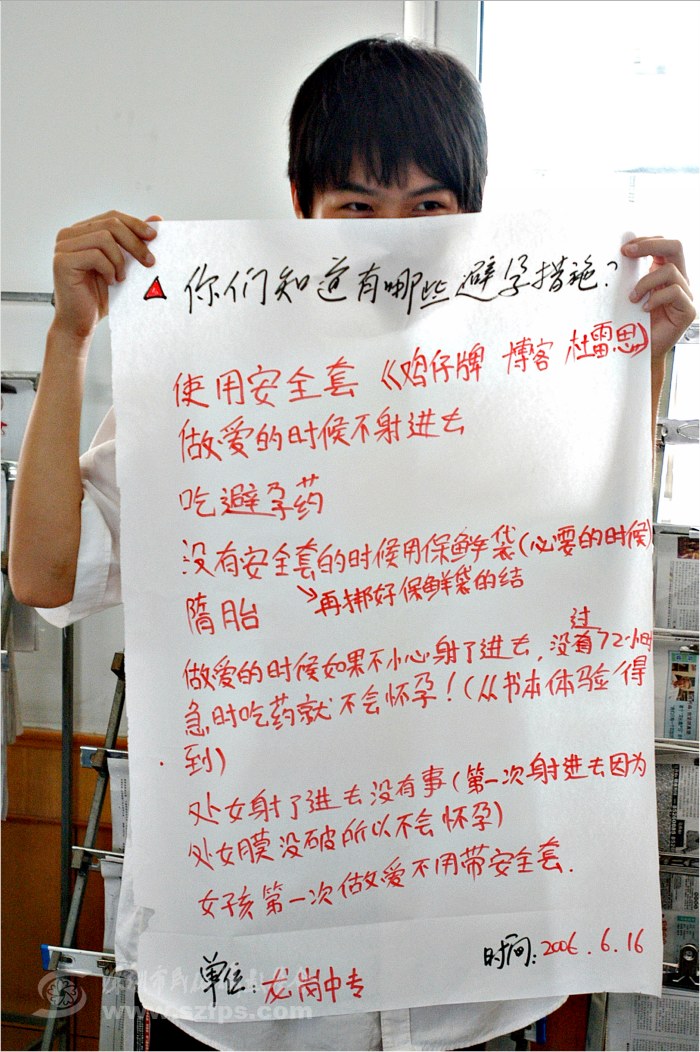 你们知道有哪些避孕措施?
使用安全套《鸡仔牌 博客 杜雷思》
做爱的时候不射进去
吃避孕药
没有安全套的时候用保鲜袋(必要的时候)
再绑好保鲜袋的结
隋胎
做爱的时候如果不小心射了进去,没有过72小时
急时吃药就不会怀孕!(从书本体验得
到)
处女射了进去没有事(第一次射进去因为
处女膜没破所以不会怀孕)
女孩第一次做爱不用带安全套.
时间:2006.6.16
单位:龙岗中专
www.szfps.com